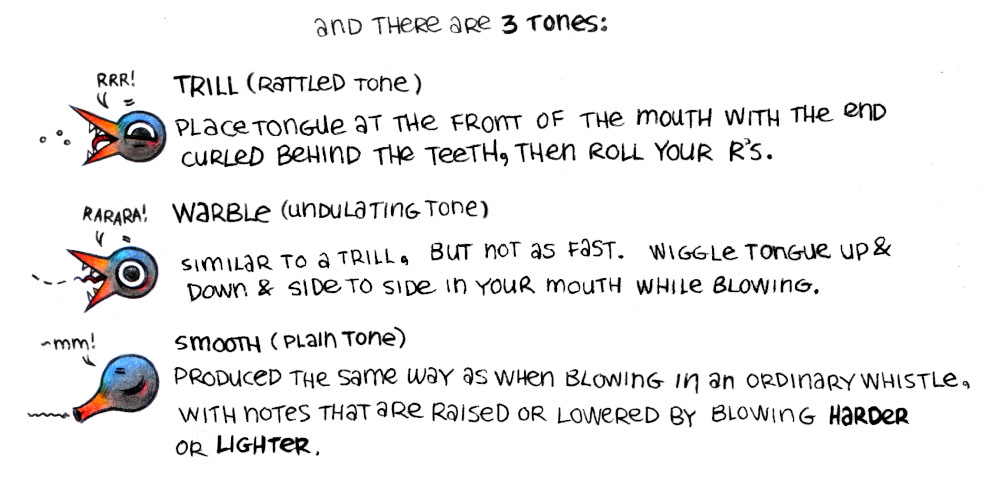 and THERE are 3 TONES:
RRR!
TRILL (RATTLED TONE)
PLACE TONGUE AT THE FRONT OF THE MOUTH WITH THE END
CURLED BEHIND THE TEETH, THEN ROLL YOUR R'S.
RARARA!
WARBLE (UNDULATING TONE)
SIMILAR TO A TRILL, BUT NOT AS FAST. WIGGLE TONGUE UP &
DOWN & SIDE TO SIDE IN YOUR MOUTH WHILE BLOWING.
~mm!
SMOOTH (PLAIN TONE)
PRODUCED THE SAME WAY AS WHEN BLOWING IN AN ORDINARY WHISTLE,
WITH NOTES THAT ARE RAISED OR LOWERED BY BLOWING HARDER
OR LIGHTER.